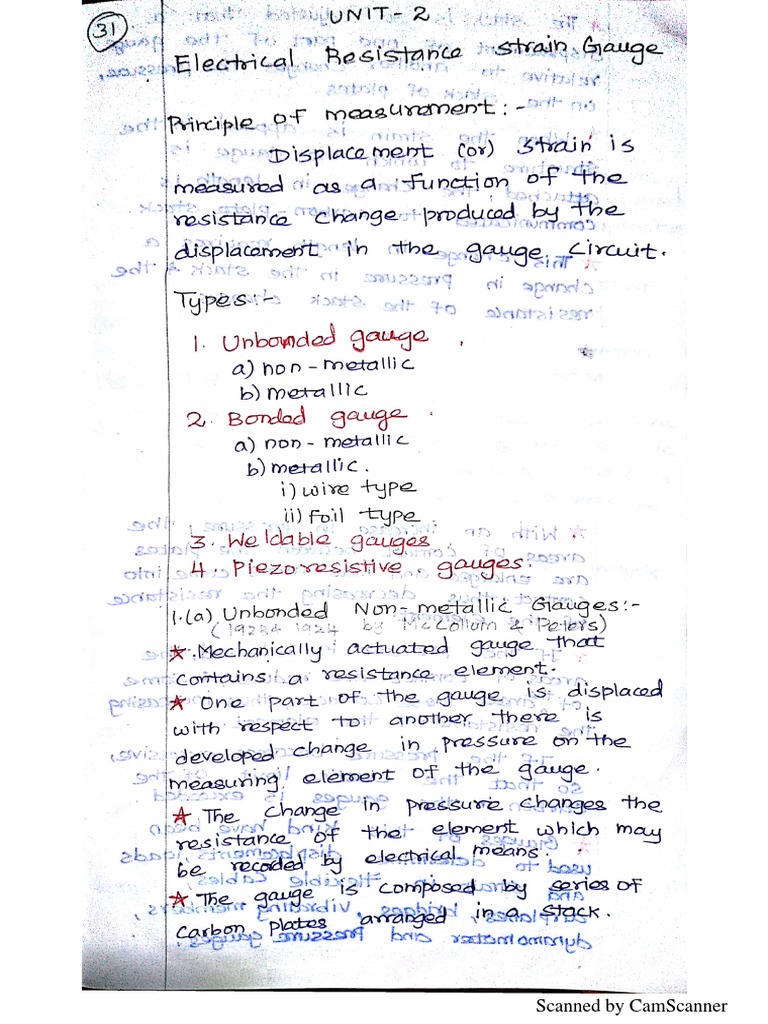 31
UNIT-2
Electrical Resistance Strain Gauge
Principle of measurement :-
Displacement (or) strain is
measured as a function of the
resistance change produced by the
displacement in the gauge circuit.
Types:-
1. Unbonded gauge
a) non-metallic
b) metallic
2. Bonded gauge
a) non-metallic
b) metallic.
i) wire type
ii) Foil type
3. Weldable gauges
4. Piezoresistive gauges.
1.(a) Unbonded Non-metallic Gauges:-
(1923& 1924 by McCollum & Peters)
* Mechanically actuated gauge that
contains a resistance element.
* One part of the gauge is displaced
with respect to another there is
developed change in pressure on the
measuring element of the gauge.
* The change in pressure changes the
resistance of the element which may
be recoded by electrical means.
* The gauge is composed by series of
carbon plates arranged in a stack.
Scanned by CamScanner